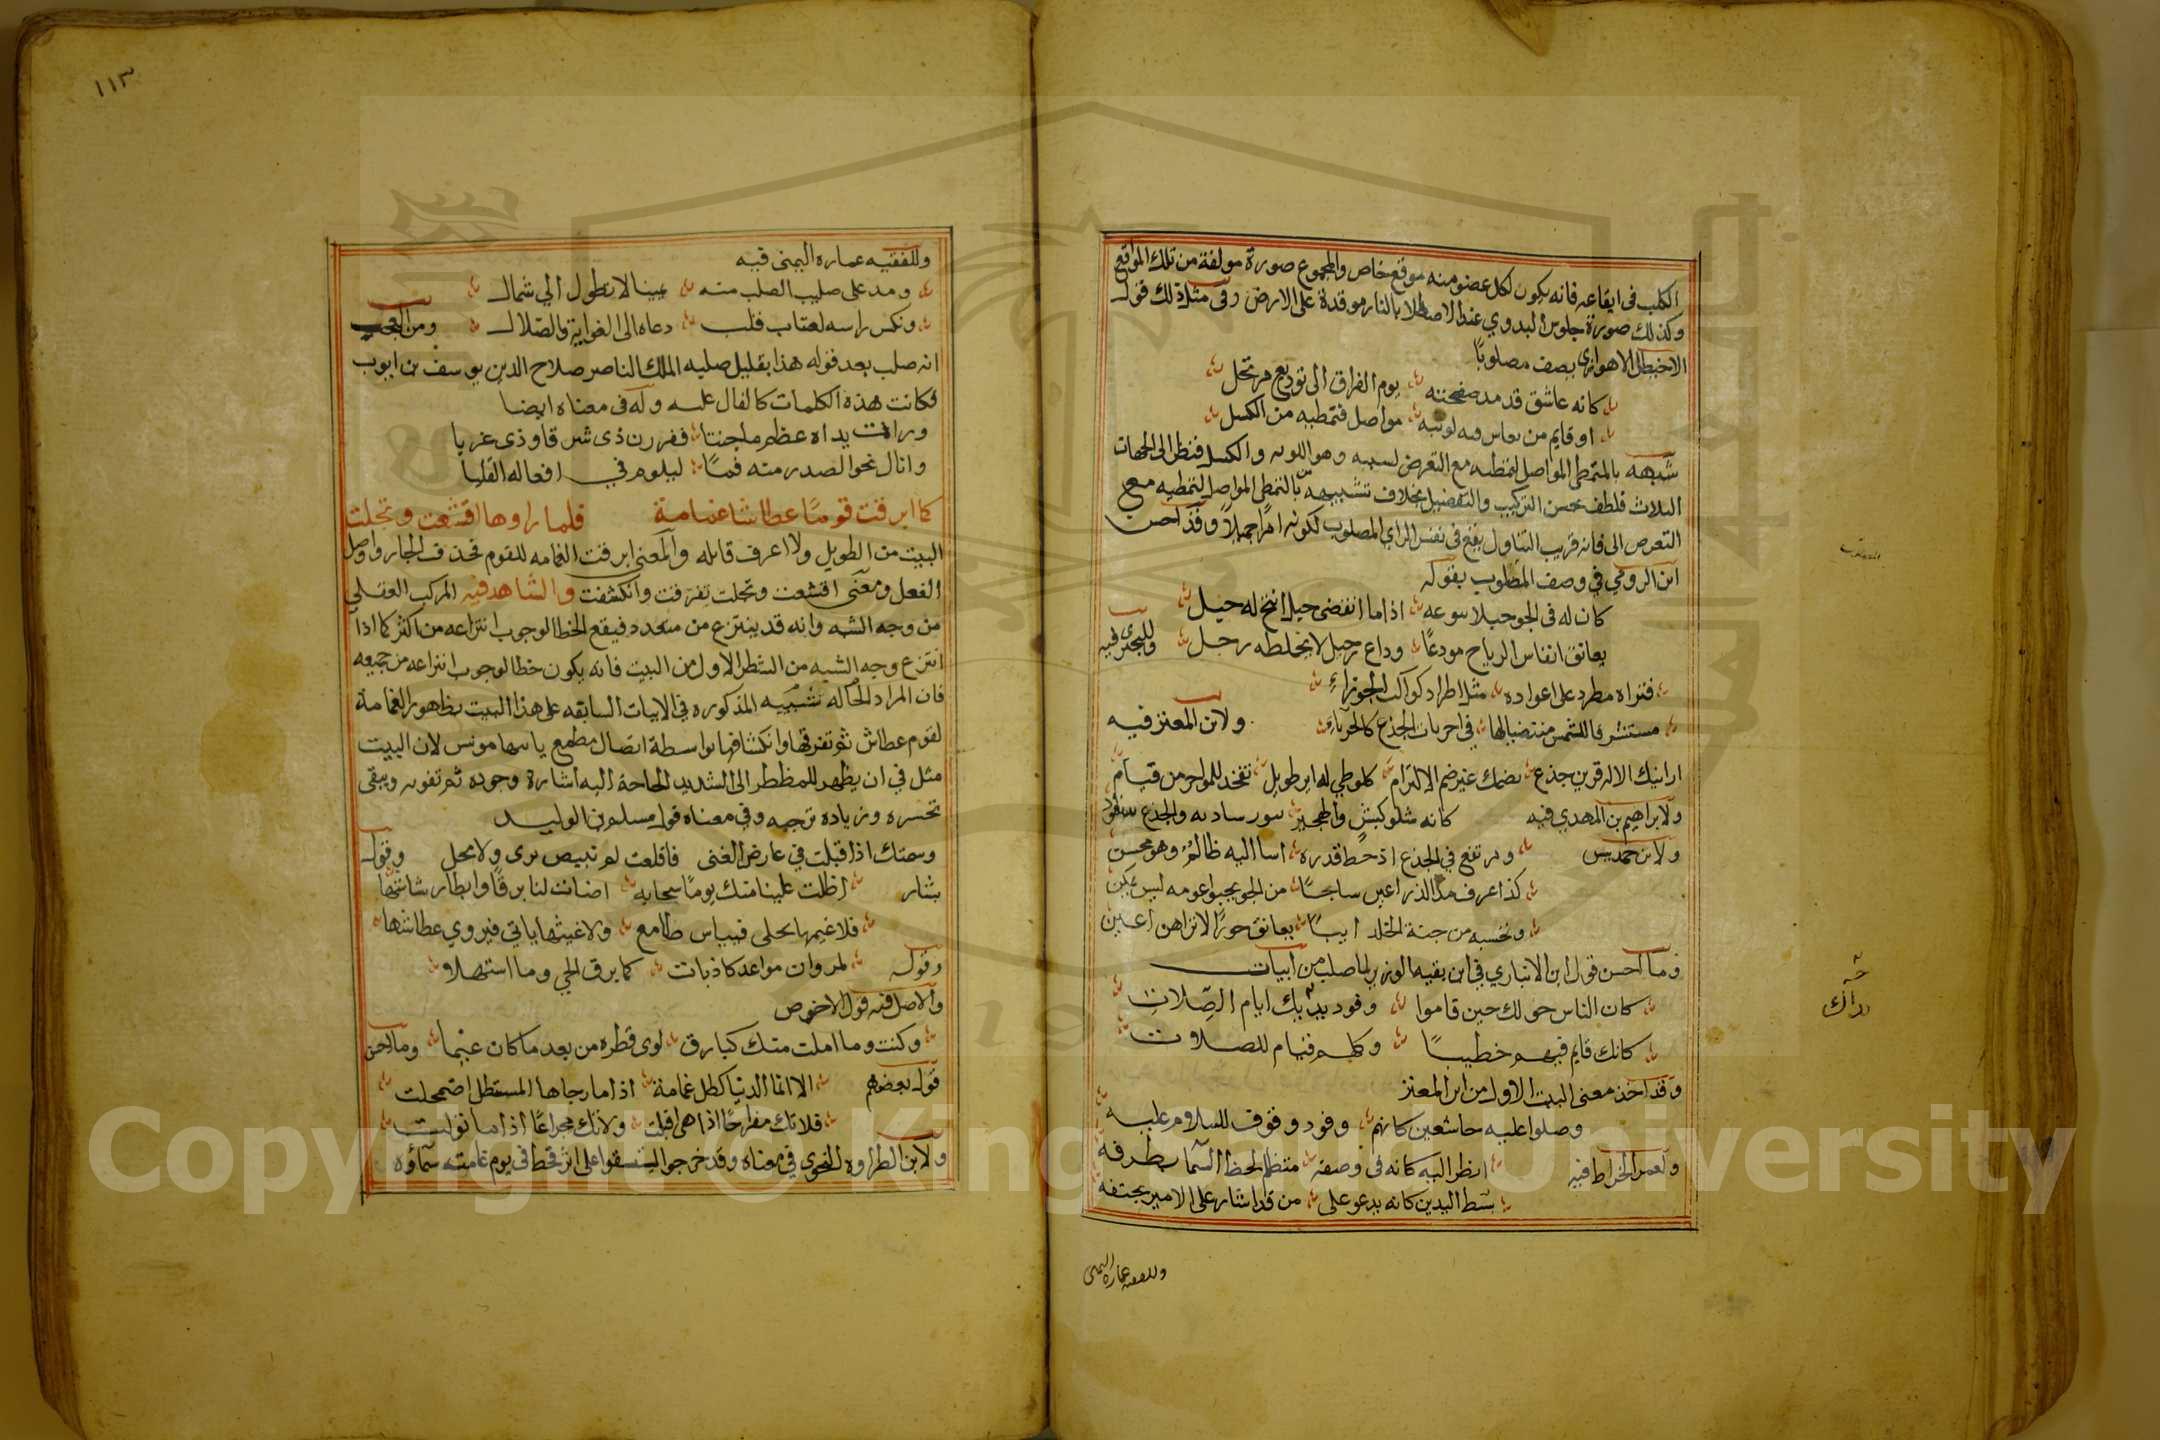 الكلب في ايقاعه فانه يكون لكل عضو منه موقع خاص والمجموع صورة مولفة من تلك المواقع
وكذلك صورة جلوس البدوي عند الاصطلا بالنار موقدة على الارض وفي مثل ذلك قول
الاخيطل الاهوازي يصف مصلوبًا
كانه عاشق قد مد صفحته يوم الفراق الى توديع مرتحل
او قايم من نعاس فيه لوثته مواصل لتمطيه من الكسل
شبهه بالمتمطي المواصل لتمطيه مع التعرض لسببه وهو اللوثه والكسل فنظر الى الجهات
الثلاث فلطف بحسن التركيب والتفصيل بخلاف تشبيهه بالتمطي المواصل لتمطيه مع
التعرض الى فانه قريب التناول يقع في نفس الراي المصلوب لكونه امرًا جمليًا وقد احسن
ابن الرومي في وصف المصلوب بقوله
كان له في الجو حبلا يبوعه اذا ما انقضى حبل اتيح له حبل
يعانق انفاس الرياح مودعًا وداع رحيل لا يحط له رحل وللبحتري فيه
فتراه مطردا على اعواده مثل اطراد كواكب الجوزاءِ
مستشرفا للشمس منتصبا لها في اخريات الجذع كالحرباءِ ولابن المعتز فيه
ارانيك الاله قرين جذع يضمك غير ضم الالتزام كلوطي له اير طويل تفخذ للمواجر من قيام
ولابراهيم بن المهدي فيه كانه شلو كبش والهجير تنور شاويه والجذع سفود
ولابن حمديس ومرتفع في الجذع اذ حط قدره اسا اليه ظالمٌ وهو محسن
كذا عرف مد الذراعين سابحًا من الجو يجبوا عومه ليس يمكن
وتحسبه من جنة الخلد ايبًا يعانق حورًا لا تراهن اعين
وما احسن قول ابن الانباري في ابن بقيه الوزير لما صلب من ابيات
كان الناس حولك حين قاموا وفود يديك ايام الصِّلاتِ
كانك قايم فيهم خطيبًا وكلهم قيام للصلاة
وقد اخذ معنى البيت الاول من ابن المعتز
وصلوا عليه خاشعين كانهم وفود وقوف للسلام عليه
ولعمر الخراط فيه انظر اليه كانه في وصفه متظلم لحظ السما بطرفه
بسط اليدين كانه يدعو على من قد اشار على الامير بحتفه
وللفقيه عماره اليمني
نداك
١١٣
وللفقيه عماره اليمني فيه
ومد على صليب الصلب منه يمينا لا تطول الي شمال
ونكس راسه لعتاب قلب دعاه الى الغواية والضلال ومن العجب
انه صلب بعد قوله هذا بقليل صلبه الملك الناصر صلاح الدين يوسف بن ايوب
فكانت هذه الكلمات كالفال عليه وله في معناه ايضا
ورات يداه عظم ما جنتا ففررن ذى شرقا وذى غربا
وامال نحو الصدر منه فمًا ليلوم في افعاله القلبا
كما ابرقت قومًا عطاشا غمامة فلما راوها اقشعت وتجلت
البيت من الطويل ولا اعرف قايله والمعنى ابرقت الغمامه للقوم فحذف الجار واوصل
الفعل ومعنى اقشعت وتجلت تفرقت وانكشفت والشاهد فيه المركب العقلي
من وجه الشبه وانه قد ينتزع من متعدد فيقع الخطا لوجوب انتزاعه من اكثر كما اذا
انتزع وجه الشبه من الشطر الاول من البيت فانه يكون خطا لوجوب انتزاعه من جميعه
فان المراد تشبيه الحاله المذكوره في الابيات السابقه على هذا البيت بظهور الغمامة
لقوم عطاش ثم تفرقها وانكشافها بواسطة اتصال مطمع بانتها مونس لان البيت
مثل في ان يظهر للمضطر الى الشديد الحاجة اليه اشارة وجوده ثم تفوته ويبقى
تحسره وزياده ترجيه وفي معناه قول مسلم بن الوليد
وسمتك اذ اقبلت في عارض الغنى فاقلعت لم تبيض بري ولا محل وقول
بشار اظلت علينا منك يومًا سحابه اضات لنا برقًا وابطا رشاشها
فلا غيمها يجلى فيياس طامع ولا غيثها ياتي فيروي عطاشها
وقوله لمروان مواعد كاذبات كما برق الحي وما استهلا
والاصل فيه قول الاخوص
وكنت وما املت منك كبارق لوى قطره من بعد ما كان غيما وما احسن
قول بعضهم الا انما الدنيا كظل غمامة اذا ما رجاها المستظل اضمحلت
فلا تك مفراحًا اذا هي اقبلت ولا تك مجزاعًا اذا ما تولت
ولابن الطراوه النحوي في معناه وقد خرجوا ليستسقوا على اثر قحط في يوم غامت سماؤه